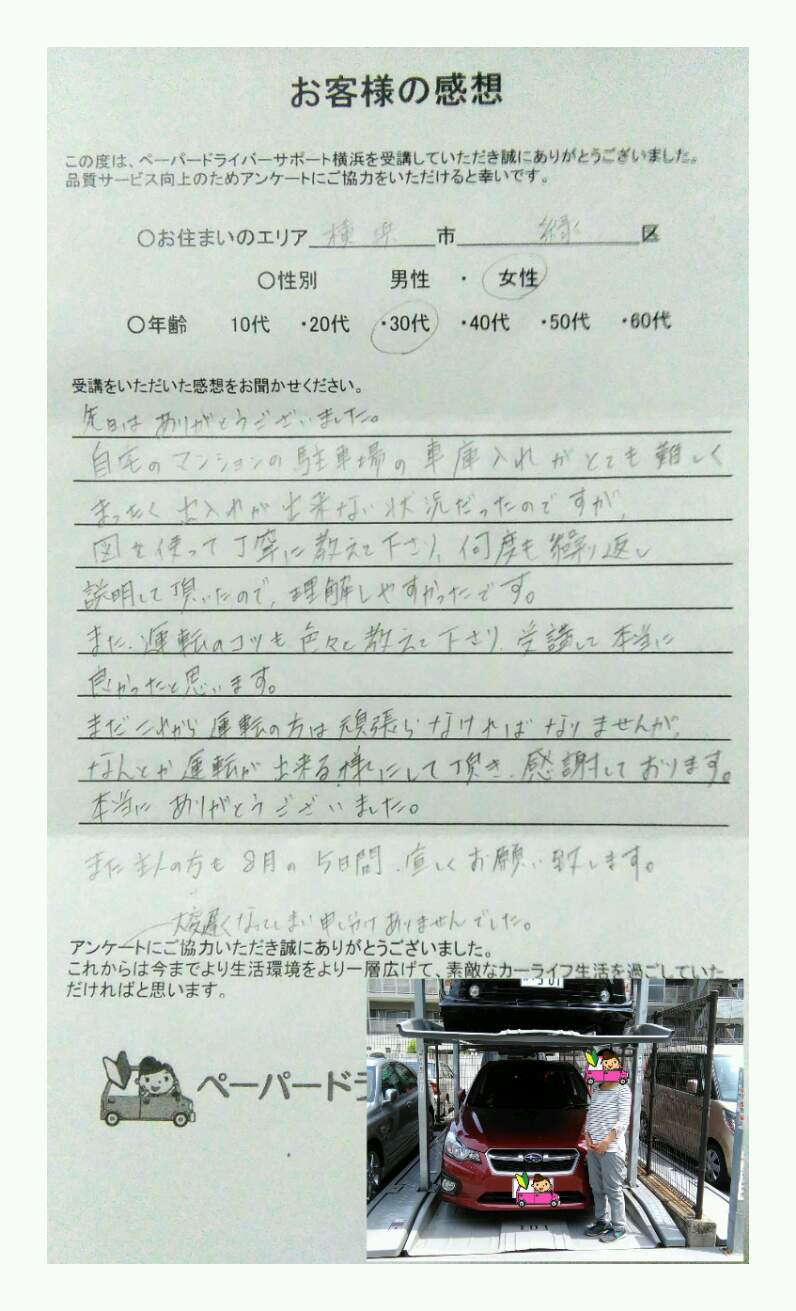 お客様の感想
この度は、ペーパードライバーサポート横浜を受講していただき誠にありがとうございました。
品質サービス向上のためアンケートにご協力をいただけると幸いです。
○お住まいのエリア 横浜 市 緑 区
○性別 男性 ・ 女性
○年齢 10代 ・20代 ・30代 ・40代 ・50代 ・60代
受講をいただいた感想をお聞かせください。
先日は ありがとうございました。
自宅のマンションの駐車場の車庫入れがとても難しく
まったく出入れが出来ない状況だったのですが、
図を使って丁寧に教えて下さり、何度も繰り返し
説明して頂いたので、理解しやすかったです。
また、運転のコツも色々と教えて下さり、受講して本当に
良かったと思います。
まだこれから運転の方は頑張らなければなりませんが、
なんとか運転が出来る様にして頂き、感謝しております。
本当にありがとうございました。
また主人の方も8月の5日間、宜しくお願い致します。
大変遅くなってしまい申し分けありませんでした。
アンケートにご協力いただき誠にありがとうございました。
これからは今までより生活環境をより一層広げて、素敵なカーライフ生活を過ごしていた
だければと思います。
ペーパードラ